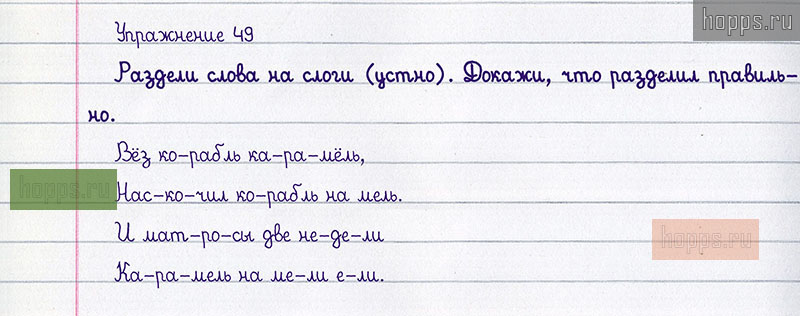 hopps.ru
Упражнение 49
Раздели слова на слоги (устно). Докажи, что разделил правиль-
но.
Вёз ко-рабль ка-ра-мёль,
hopps.ru
Нас-ко-чил ко-рабль на мель.
И мат-ро-сы две не-де-ли
hopps.ru
Ка-ра-мель на ме-ли е-ли.